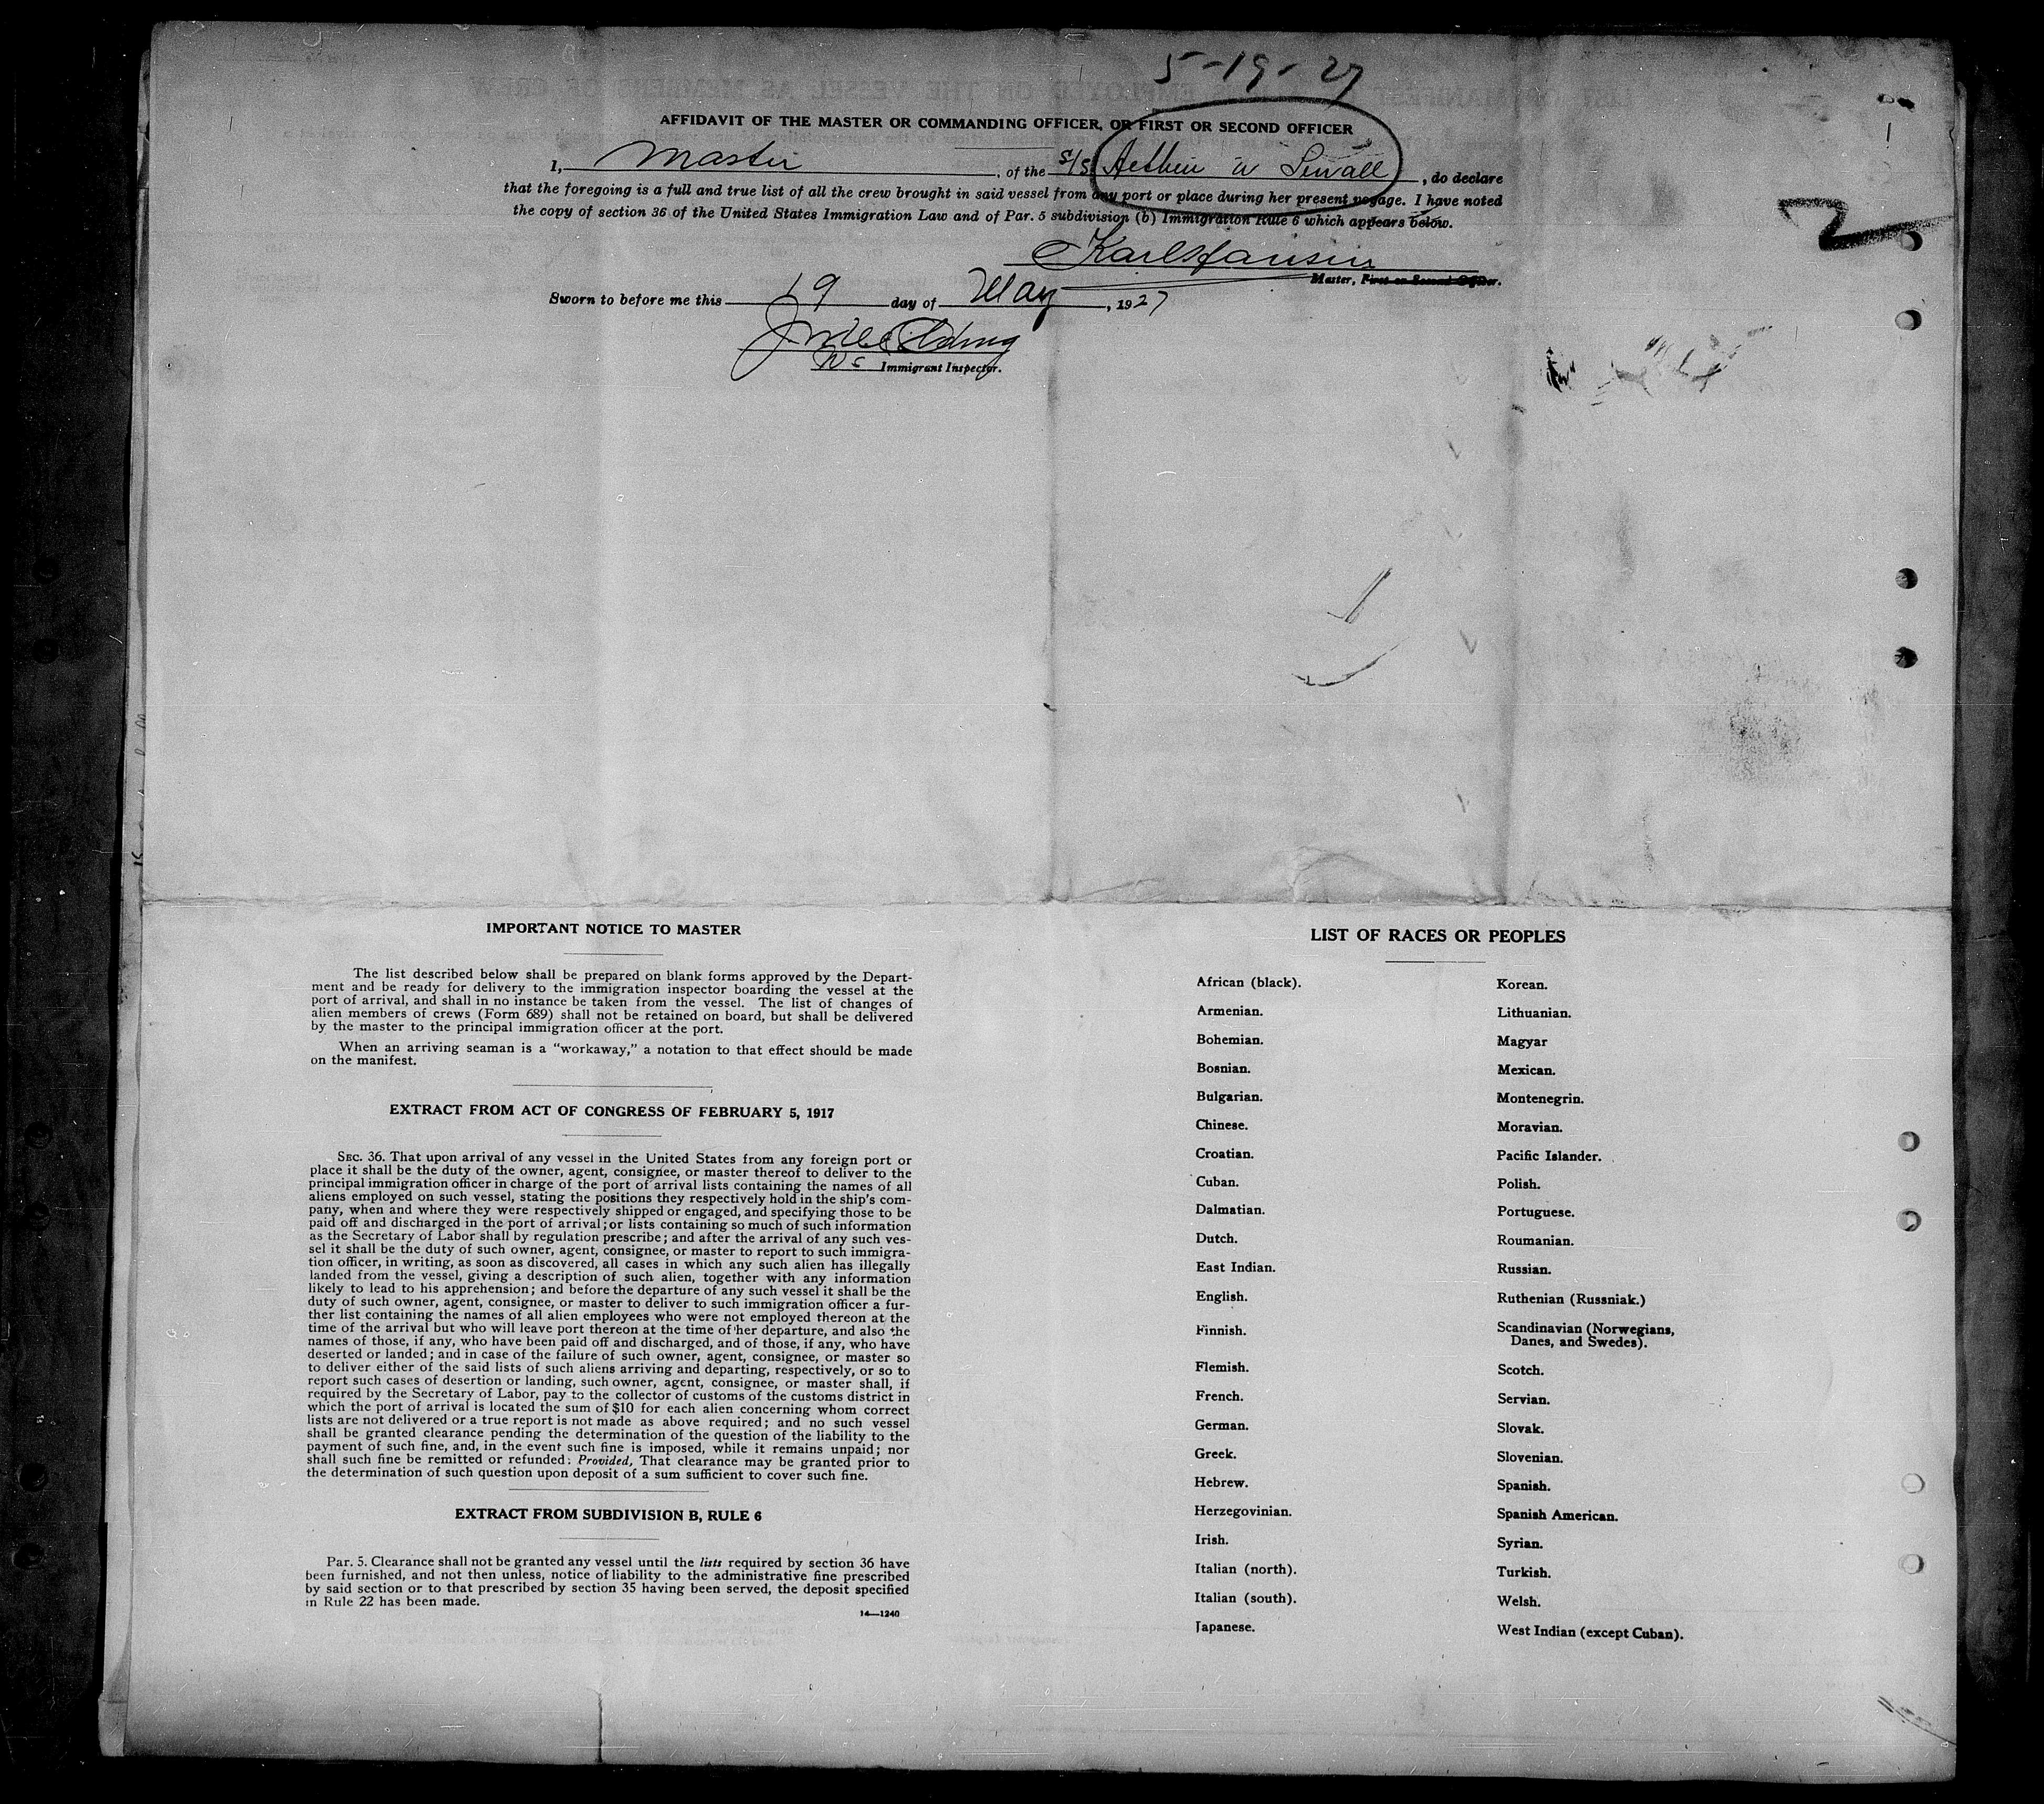 5-19-27
AFFIDAVIT OF THE MASTER OR COMMANDING OFFICER, OR FIRST OR SECOND OFFICER
I, Master, of the S/S Arthur W Sewall, do declare
that the foregoing is a full and true list of all the crew brought in said vessel from any port or place during her present voyage. I have noted
the copy of section 36 of the United States Immigration Law and of Par. 5 subdivision (b) Immigration Rule 6 which appears below.
Karl Hansen
Master, First or Second Officer.
Sworn to before me this 19 day of May, 1927
Immigrant Inspector.
IMPORTANT NOTICE TO MASTER
The list described below shall be prepared on blank forms approved by the Depart-
ment and be ready for delivery to the immigration inspector boarding the vessel at the
port of arrival, and shall in no instance be taken from the vessel. The list of changes of
alien members of crews (Form 689) shall not be retained on board, but shall be delivered
by the master to the principal immigration officer at the port.
When an arriving seaman is a "workaway," a notation to that effect should be made
on the manifest.
EXTRACT FROM ACT OF CONGRESS OF FEBRUARY 5, 1917
SEC. 36. That upon arrival of any vessel in the United States from any foreign port or
place it shall be the duty of the owner, agent, consignee, or master thereof to deliver to the
principal immigration officer in charge of the port of arrival lists containing the names of all
aliens employed on such vessel, stating the positions they respectively hold in the ship's com-
pany, when and where they were respectively shipped or engaged, and specifying those to be
paid off and discharged in the port of arrival; or lists containing so much of such information
as the Secretary of Labor shall by regulation prescribe; and after the arrival of any such ves-
sel it shall be the duty of such owner, agent, consignee, or master to report to such immigra-
tion officer, in writing, as soon as discovered, all cases in which any such alien has illegally
landed from the vessel, giving a description of such alien, together with any information
likely to lead to his apprehension; and before the departure of any such vessel it shall be the
duty of such owner, agent, consignee, or master to deliver to such immigration officer a fur-
ther list containing the names of all alien employees who were not employed thereon at the
time of the arrival but who will leave port thereon at the time of her departure, and also the
names of those, if any, who have been paid off and discharged, and of those, if any, who have
deserted or landed; and in case of the failure of such owner, agent, consignee, or master so
to deliver either of the said lists of such aliens arriving and departing, respectively, or so to
report such cases of desertion or landing, such owner, agent, consignee, or master shall, if
required by the Secretary of Labor, pay to the collector of customs of the customs district in
which the port of arrival is located the sum of $10 for each alien concerning whom correct
lists are not delivered or a true report is not made as above required; and no such vessel
shall be granted clearance pending the determination of the question of the liability to the
payment of such fine, and, in the event such fine is imposed, while it remains unpaid; nor
shall such fine be remitted or refunded: Provided, That clearance may be granted prior to
the determination of such question upon deposit of a sum sufficient to cover such fine.
EXTRACT FROM SUBDIVISION B, RULE 6
Par. 5. Clearance shall not be granted any vessel until the lists required by section 36 have
been furnished, and not then unless, notice of liability to the administrative fine prescribed
by said section or to that prescribed by section 35 having been served, the deposit specified
in Rule 22 has been made.
14—1240
LIST OF RACES OR PEOPLES
African (black).
Armenian.
Bohemian.
Bosnian.
Bulgarian.
Chinese.
Croatian.
Cuban.
Dalmatian.
Dutch.
East Indian.
English.
Finnish.
Flemish.
French.
German.
Greek.
Hebrew.
Herzegovinian.
Irish.
Italian (north).
Italian (south).
Japanese.
Korean.
Lithuanian.
Magyar
Mexican.
Montenegrin.
Moravian.
Pacific Islander.
Polish.
Portuguese.
Roumanian.
Russian.
Ruthenian (Russniak.)
Scandinavian (Norwegians,
Danes, and Swedes).
Scotch.
Servian.
Slovak.
Slovenian.
Spanish.
Spanish American.
Syrian.
Turkish.
Welsh.
West Indian (except Cuban).